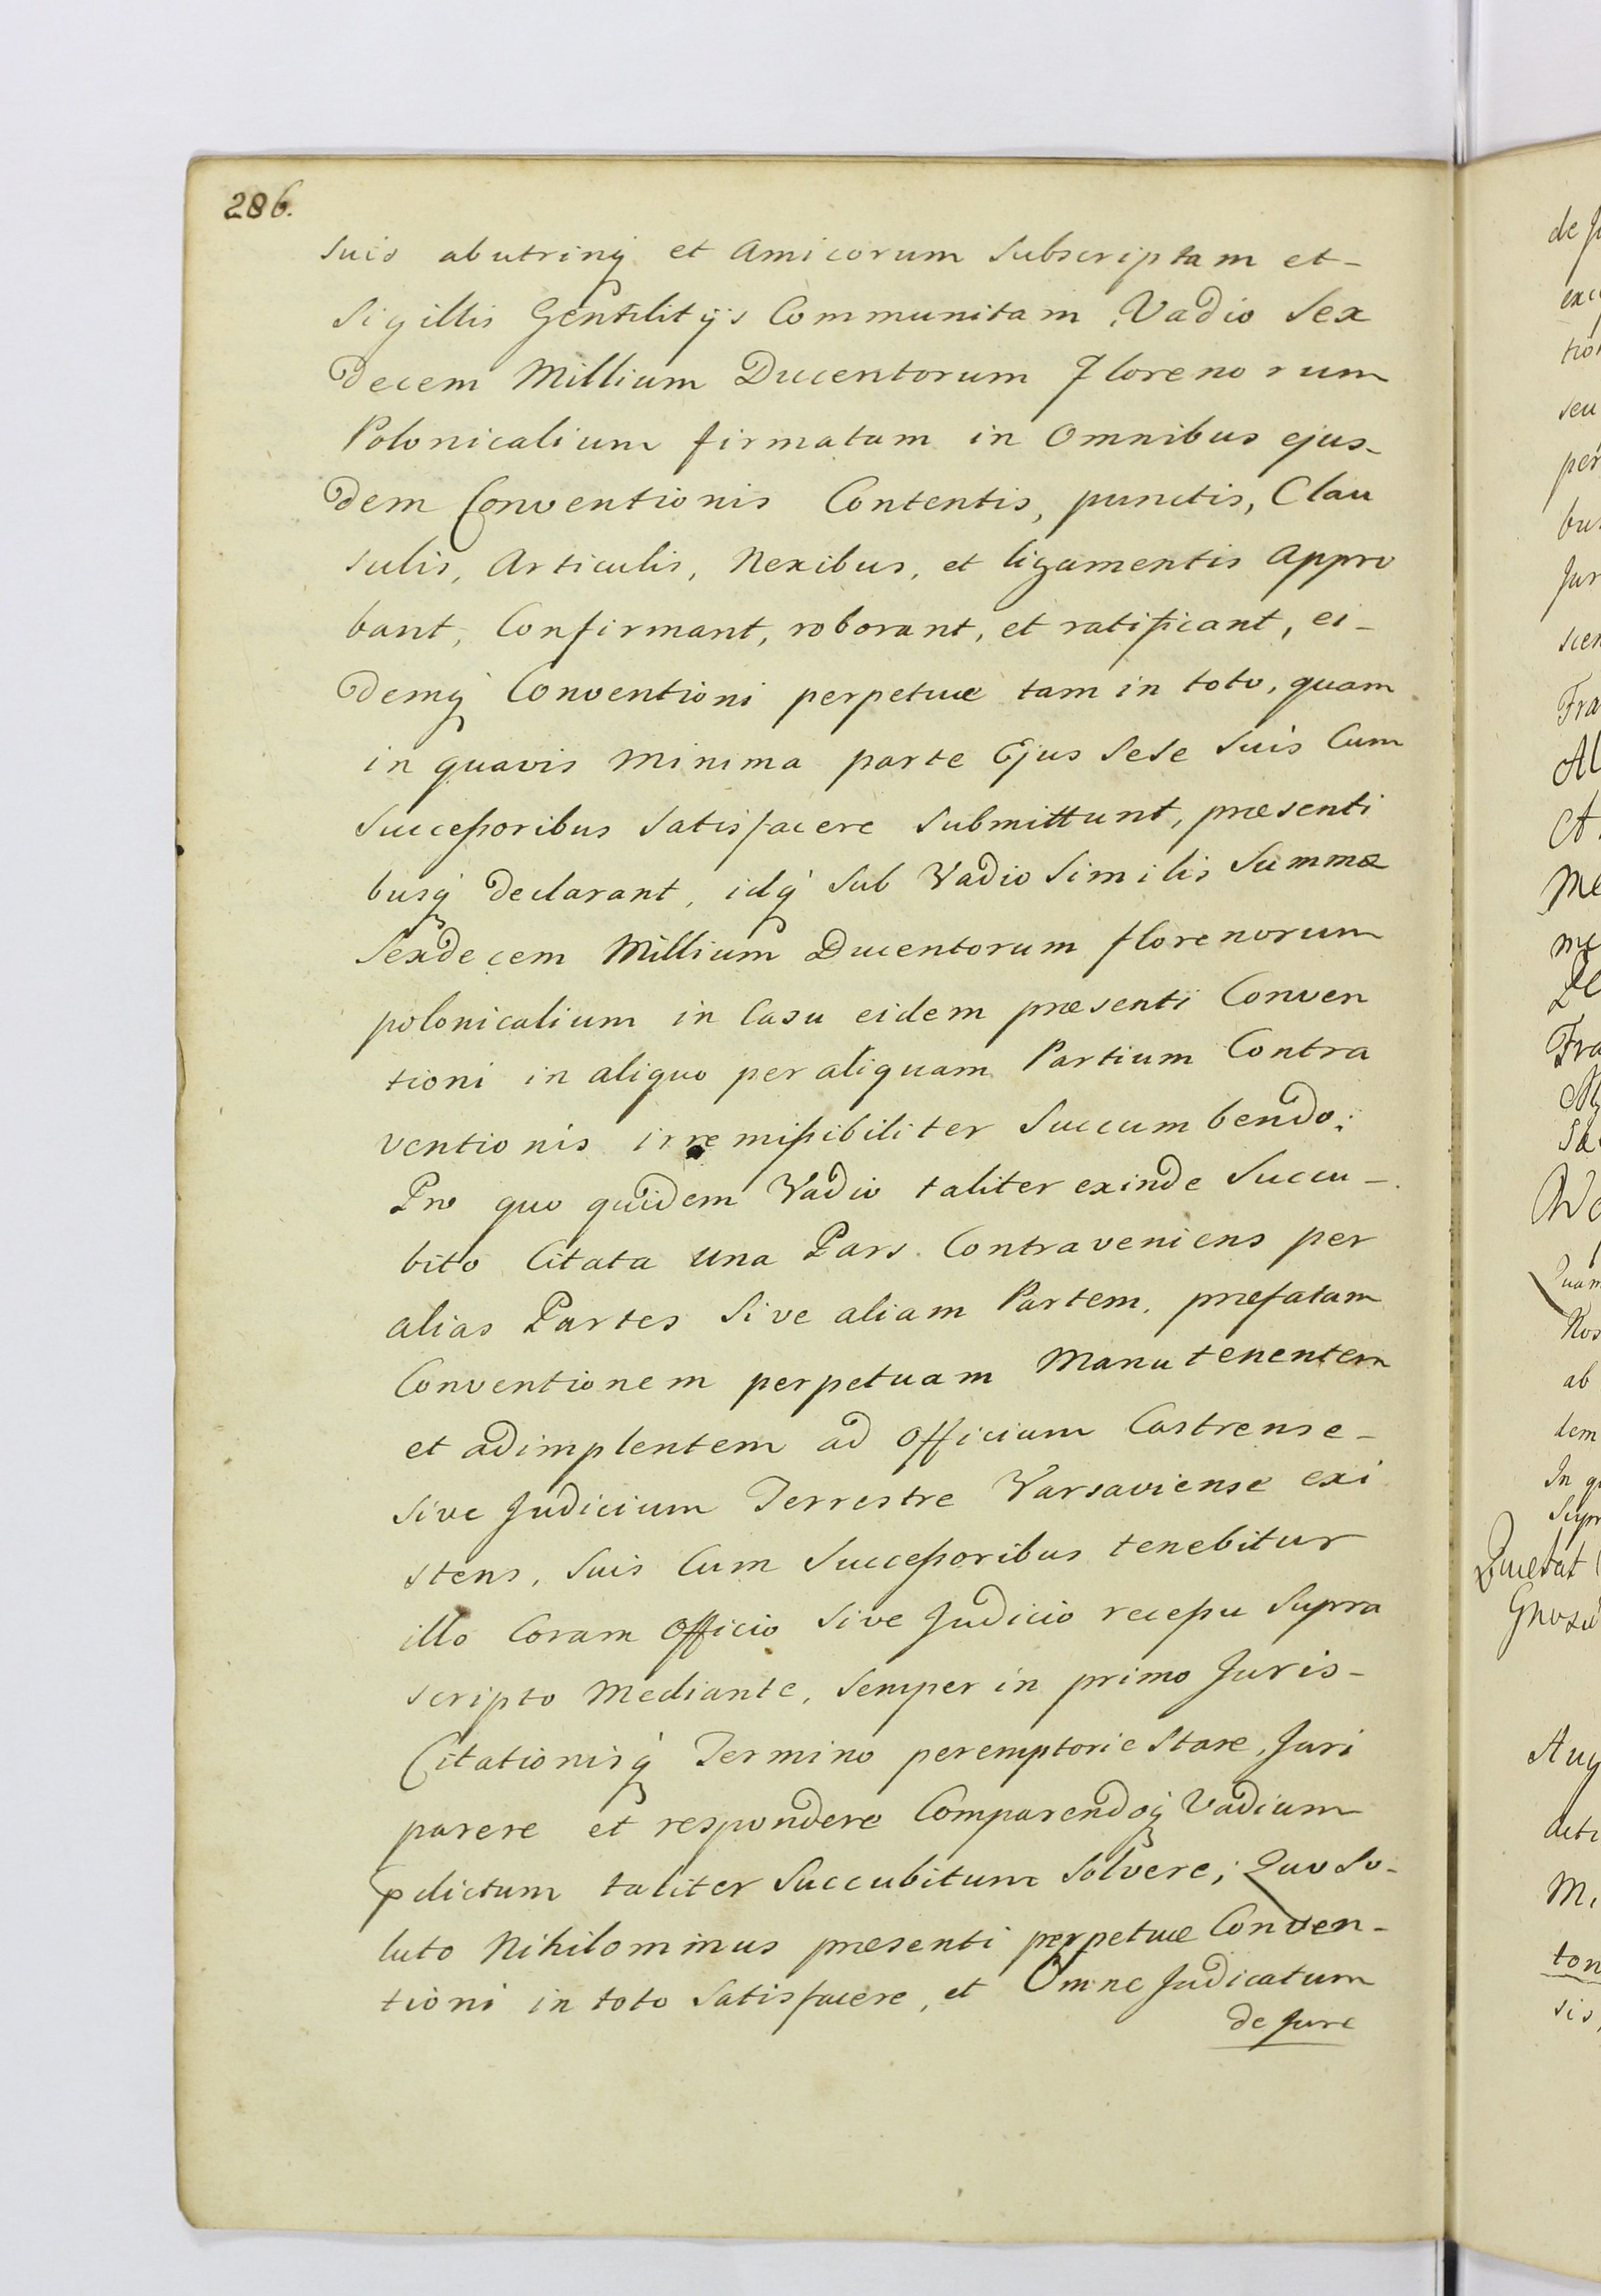 286.
suis abutrinq et Amicorum Subscriptam et-
Sigillis Gentilitijs Communitam, Vadio Sex
decem Millium Ducentorum Florenorum
Polonicalium firmatam in Omnibus ejus-
dem Conventionis Contentis, punctis, Clau
sulis, Articulis, Nexibus, et ligamentis Appro
bant, Confirmant, roborant, et ratificant, ei-
demq Conventioni perpetuæ tam in toto, quam
in quavis Minima parte Ejus Sese Suis Cum
Succeßoribus Satisfacere Submittunt, præsenti
busq declarant, idq Sub Vadio Similis Summæ
Sexdecem Millium Ducentorum florenorum
polonicalium in Casu eidem præsenti Conven
tioni in aliquo per aliquam Partium Contra
ventionis irremißibiliter Succumbendo;
Pro quo quidem Vadio taliter exinde Succu-
bito Citata una Pars Contraveniens per
alias Partes Sive aliam Partem, præfatam
Conventionem perpetuam Manutenentem
et adimplentem ad Officium Castrense-
Sive Judicium Terrestre Varsaviense exi
stens, Suis Cum Succeßoribus tenebitur
illo Coram Officio Sive Judicio receßu Supra
scripto Mediante, Semper in primo Juris-
Citationisq Termino peremptorie Stare, Juri
parere et respondere Comparendoq Vadium
pdictum taliter Succubitum Solvere; Quo So-
luto Nihilominus præsenti perpetuæ Conven-
tioni in toto Satisfacere, et Omne Judicatum
de Jure